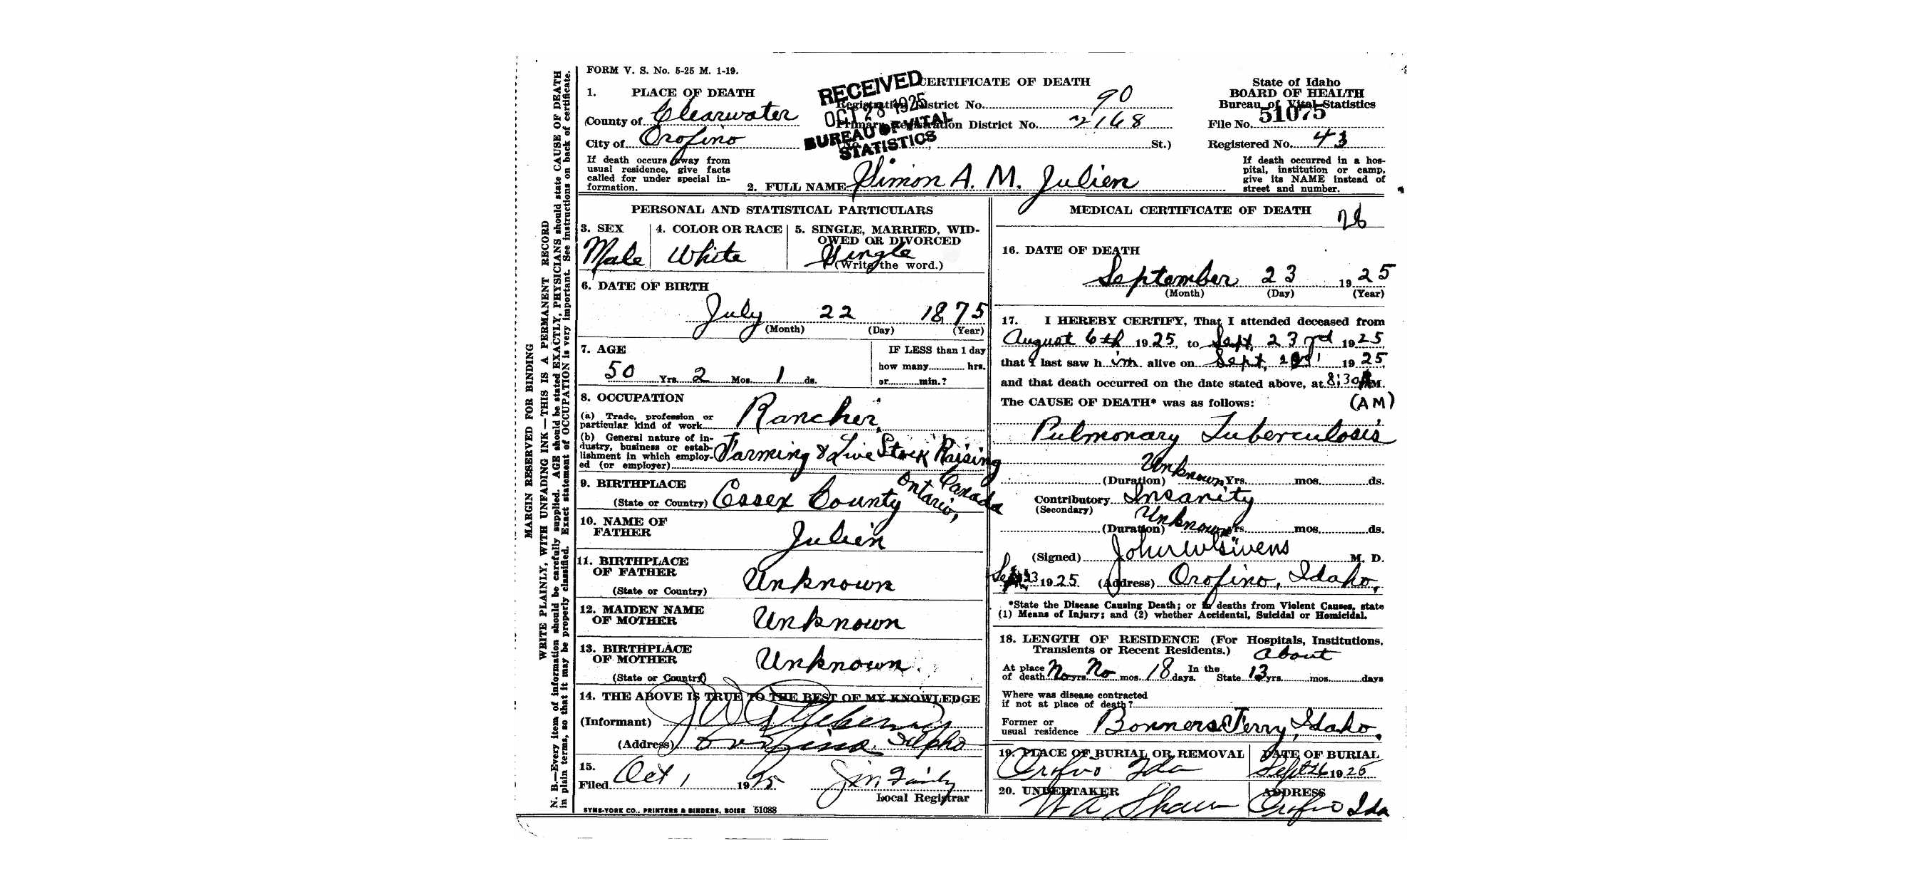 FORM V. S. No. 5-25 M. 1-19.
RECEIVED
OCT 28 1925
BUREAU OF VITAL
STATISTICS
CERTIFICATE OF DEATH
State of Idaho
BOARD OF HEALTH
Bureau of Vital Statistics
File No. 51075
Registered No. 43
1. PLACE OF DEATH
County of Clearwater
City of Orofino
Registration District No. 90
Primary Registration District No. 2168
St.)
If death occurs away from
usual residence, give facts
called for under special in-
formation.
2. FULL NAME Simon A. M. Julien
If death occurred in a hos-
pital, institution or camp,
give its NAME instead of
street and number.
MARGIN RESERVED FOR BINDING
WRITE PLAINLY, WITH UNFADING INK—THIS IS A PERMANENT RECORD
N. B.—Every item of information should be carefully supplied. AGE should be stated EXACTLY, PHYSICIANS should state CAUSE OF DEATH
in plain terms, so that it may be properly classified. Exact statement of OCCUPATION is very important. See instructions on back of certificate.
PERSONAL AND STATISTICAL PARTICULARS
3. SEX
Male
4. COLOR OR RACE
White
5. SINGLE, MARRIED, WID-
OWED OR DIVORCED
Single
(Write the word.)
6. DATE OF BIRTH
July 22 1875
(Month) (Day) (Year)
7. AGE
50 Yrs. 2 Mos. 1 ds.
IF LESS than 1 day
how many hrs.
or min.?
8. OCCUPATION
(a) Trade, profession or
particular kind of work Rancher
(b) General nature of in-
dustry, business or estab-
lishment in which employ-
ed (or employer) Farming & Live Stock Raising
9. BIRTHPLACE
(State or Country) Essex County Ontario, Canada
10. NAME OF
FATHER Julien
11. BIRTHPLACE
OF FATHER
(State or Country) Unknown
12. MAIDEN NAME
OF MOTHER Unknown
13. BIRTHPLACE
OF MOTHER
(State or Country) Unknown
14. THE ABOVE IS TRUE TO THE BEST OF MY KNOWLEDGE
(Informant)
(Address) Orofino, Idaho
15.
Filed Oct 1 1925
Local Registrar
SYMS-YORK CO., PRINTERS & BINDERS, BOISE 51088
MEDICAL CERTIFICATE OF DEATH
16. DATE OF DEATH
September 23 1925
(Month) (Day) (Year)
17. I HEREBY CERTIFY, That I attended deceased from
August 6th 1925, to Sept. 23rd 1925,
that I last saw him alive on Sept. 1925
and that death occurred on the date stated above, at 8:30 AM.
The CAUSE OF DEATH* was as follows: (AM)
Pulmonary Tuberculosis
Unknown
(Duration) Yrs. mos. ds.
Contributory Insanity
(Secondary)
Unknown
(Duration) Yrs. mos. ds.
(Signed) John W. Givens M. D.
Sept 23 1925 (Address) Orofino, Idaho,
*State the Disease Causing Death; or in deaths from Violent Causes, state
(1) Means of Injury; and (2) whether Accidental, Suicidal or Homicidal.
18. LENGTH OF RESIDENCE (For Hospitals, Institutions,
Transients or Recent Residents.) About
At place
of death No yrs. No mos. 18 days. In the
State 13 yrs. mos. days
Where was disease contracted
if not at place of death?
Former or
usual residence Bonners Ferry, Idaho.
19. PLACE OF BURIAL OR REMOVAL
Orofino Ida
DATE OF BURIAL
Sept 26 1925
20. UNDERTAKER
W A Shaw
ADDRESS
Orofino Ida